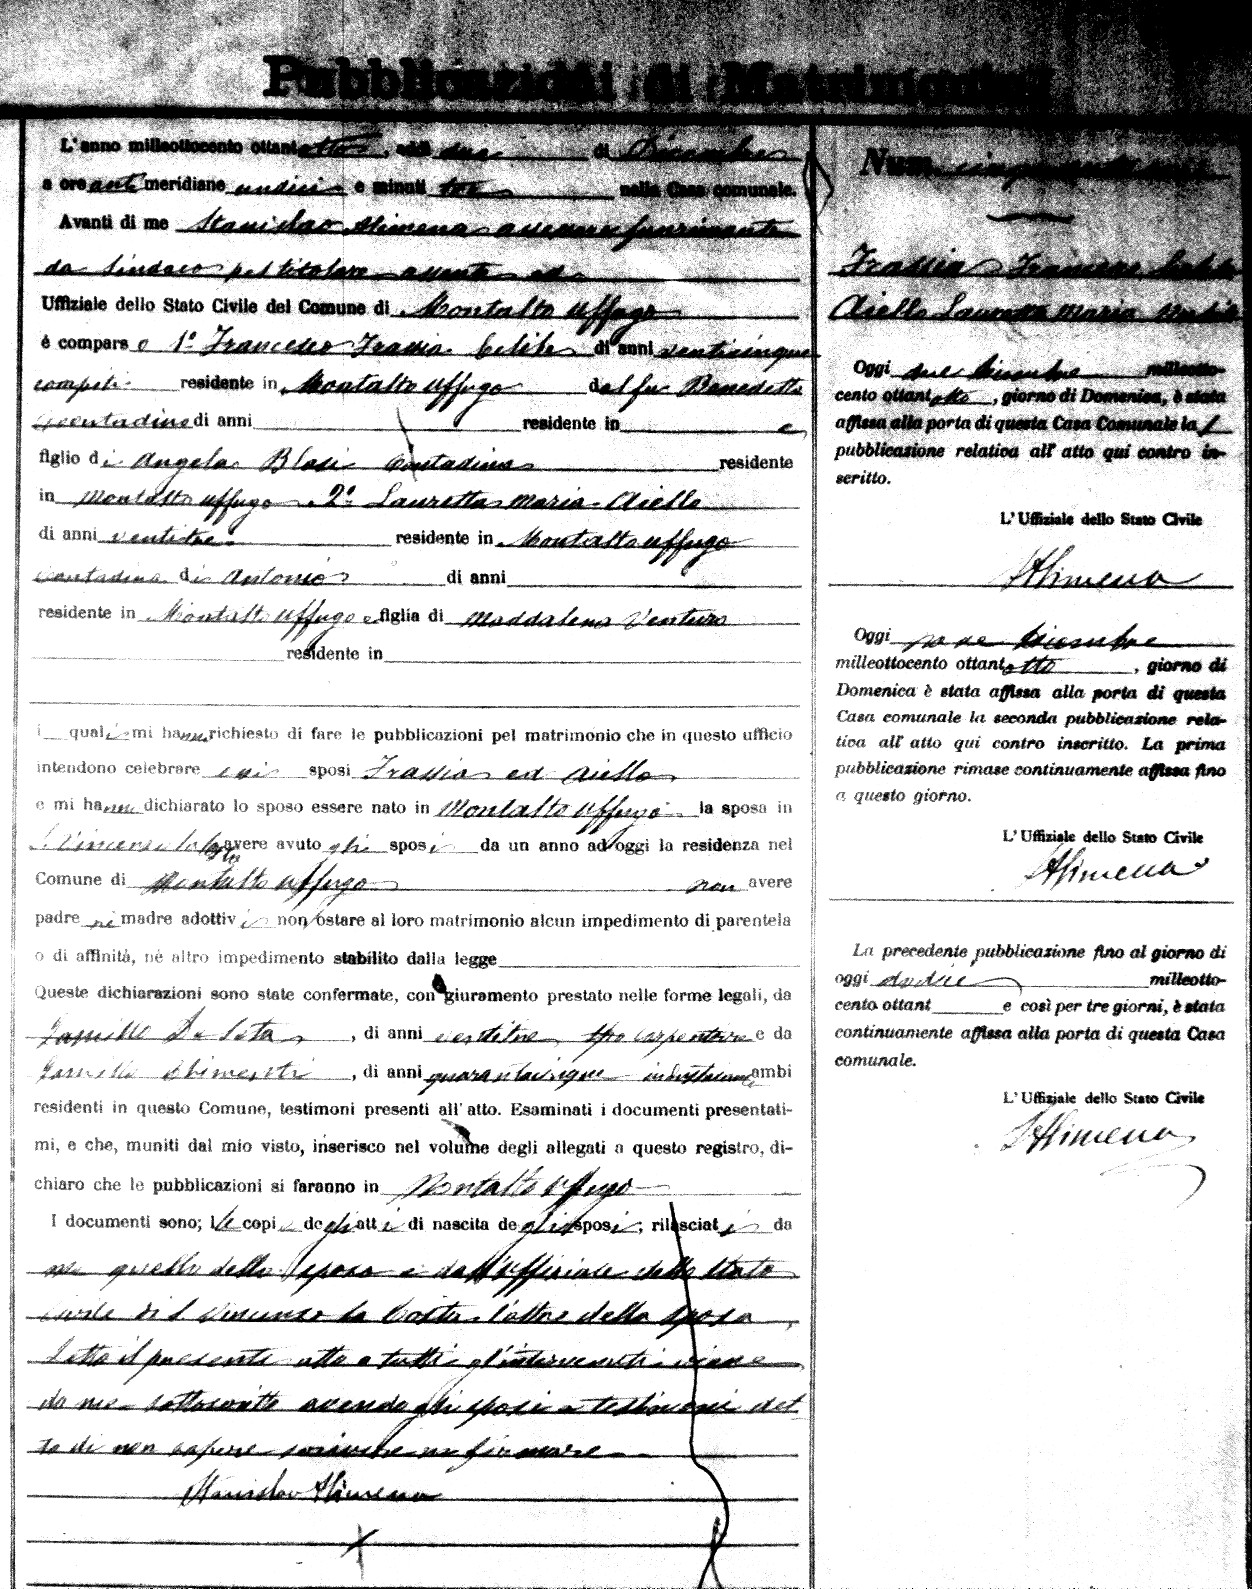 Pubblicazioni di Matrimonio
L'anno milleottocento ottantotto, addì due di Dicembre
a ore antimeridiane undici e minuti tre nella Casa comunale.
Avanti di me Stanislao Alimena assessore funzionante
da Sindaco pel titolare assente ed
Uffiziale dello Stato Civile del Comune di Montalto Uffugo
è comparso 1º Francesco Frassia Celibe di anni venticinque
residente in Montalto Uffugo del fu Benedetto
contadino di anni residente in e
figlio di Angela Blasi contadina residente
in Montalto Uffugo. 2º Lauretta Maria Aiello
di anni ventitre residente in Montalto Uffugo
contadina di Antonio di anni
residente in Montalto Uffugo e figlia di Maddalena Venturo
residente in
i quali mi hanno richiesto di fare le pubblicazioni pel matrimonio che in questo ufficio
intendono celebrare essi sposi Frassia ed Aiello
e mi hanno dichiarato lo sposo essere nato in Montalto Uffugo la sposa in
S. Vincenzo la Costa avere avuto gli sposi da un anno ad oggi la residenza nel
Comune di Montalto Uffugo non avere
padre nè madre adottivi non ostare al loro matrimonio alcun impedimento di parentela
o di affinità, nè altro impedimento stabilito dalla legge
Queste dichiarazioni sono state confermate, con giuramento prestato nelle forme legali, da
De Seta, di anni ventitre carpentiere e da
, di anni quarantacinque ambi
residenti in questo Comune, testimoni presenti all'atto. Esaminati i documenti presentati-
mi, e che, muniti dal mio visto, inserisco nel volume degli allegati a questo registro, di-
chiaro che le pubblicazioni si faranno in Montalto Uffugo
I documenti sono; le copie degli atti di nascita degli sposi, rilasciati da
me quello dello sposo e dall'Uffiziale dello Stato
Civile di S. Vincenzo la Costa l'altro della sposa,
Letto il presente atto a tutti gl'intervenuti viene
da me sottoscritto avendo gli sposi e testimoni det
to di non sapere scrivere ne firmare
Stanislao Alimena
Num. cinquanta
Frassia Francesco Celibe
Aiello Lauretta Maria Nubile
Oggi due Dicembre milleotto-
cento ottantotto, giorno di Domenica, è stata
affissa alla porta di questa Casa Comunale la 1
pubblicazione relativa all'atto qui contro in-
scritto.
L'Uffiziale dello Stato Civile
SAlimena
Oggi nove Dicembre
milleottocento ottantotto, giorno di
Domenica è stata affissa alla porta di questa
Casa comunale la seconda pubblicazione rela-
tiva all'atto qui contro inscritto. La prima
pubblicazione rimase continuamente affissa fino
a questo giorno.
L'Uffiziale dello Stato Civile
SAlimena
La precedente pubblicazione fino al giorno di
oggi dodici milleotto-
cento ottant e così per tre giorni, è stata
continuamente affissa alla porta di questa Casa
comunale.
L'Uffiziale dello Stato Civile
SAlimena